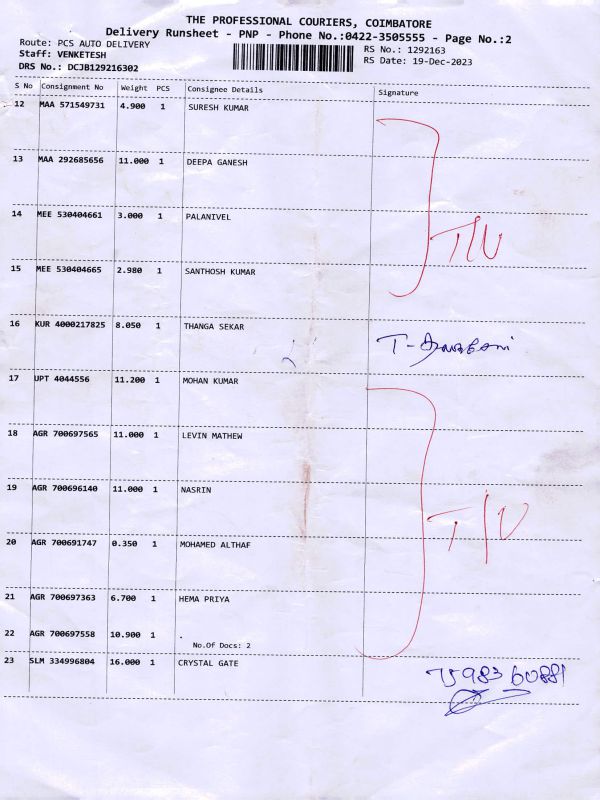 THE PROFESSIONAL COURIERS, COIMBATORE
Delivery Runsheet - PNP - Phone No.:0422-3505555 - Page No.:2
Route: PCS AUTO DELIVERY RS No.: 1292163
Staff: VENKETESH RS Date: 19-Dec-2023
DRS No.: DCJB129216302
S No Consignment No Weight PCS Consignee Details Signature
12 MAA 571549731 4.900 1 SURESH KUMAR
13 MAA 292685656 11.000 1 DEEPA GANESH
14 MEE 530404661 3.000 1 PALANIVEL
T/U
15 MEE 530404665 2.980 1 SANTHOSH KUMAR
16 KUR 4000217825 8.050 1 THANGA SEKAR T-
17 UPT 4044556 11.200 1 MOHAN KUMAR
18 AGR 700697565 11.000 1 LEVIN MATHEW
19 AGR 700696140 11.000 1 NASRIN
T/U
20 AGR 700691747 0.350 1 MOHAMED ALTHAF
21 AGR 700697363 6.700 1 HEMA PRIYA
22 AGR 700697558 10.900 1 .
No.Of Docs: 2
23 SLM 334996804 16.000 1 CRYSTAL GATE 75983 60881